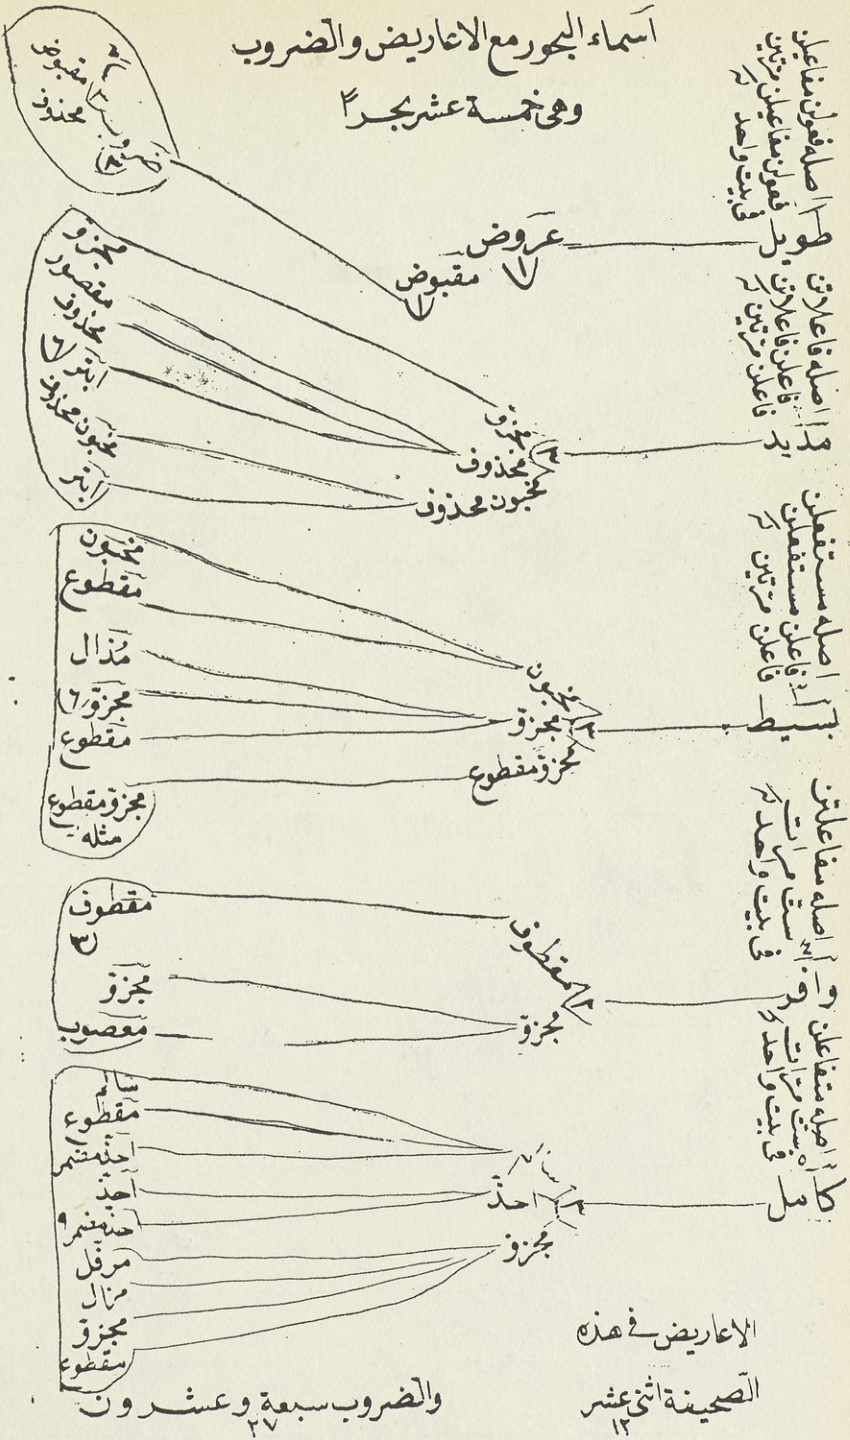 اسماء البحور مع الاعاريض والضروب
وهى خمسة عشر بحراً
اصله فعولن مفاعيلن
فعولن مفاعيلن مرتين
فى بيت واحد
طويل
عروض
١
مقبوض
١
ضروب ٣
سالم
مقبوض
محذوف
اصله فاعلاتن
فاعلن فاعلاتن
فاعلن مرتين
مديد
٣
مجزو
محذوف
مخبون محذوف
مجزو
مقصور
محذوف
ابتر ٦
مخبون محذوف
ابتر
اصله مستفعلن
فاعلن مستفعلن
فاعلن مرتين
بسيط
٣
مخبون
مجزو
مجزو مقطوع
مخبون
مقطوع
مذال
مجزو ٦
مقطوع
مجزو مقطوع
مثله
اصله مفاعلتن
ست مرات
فى بيت واحد
وافر
٢
مقطوف
مجزو
مقطوف
٣
مجزو
معصوب
اصله متفاعلن
ست مرات
فى بيت واحد
كامل
٣
سالم
احذ
مجزو
سالم
مقطوع
احذ مضمر
احذ
احذ مضمر ٩
مرفل
مذال
مجزو
مقطوع
الاعاريض فى هذه
الصحيفة اثنى عشر
١٢
والضروب سبعة وعشرون
٢٧